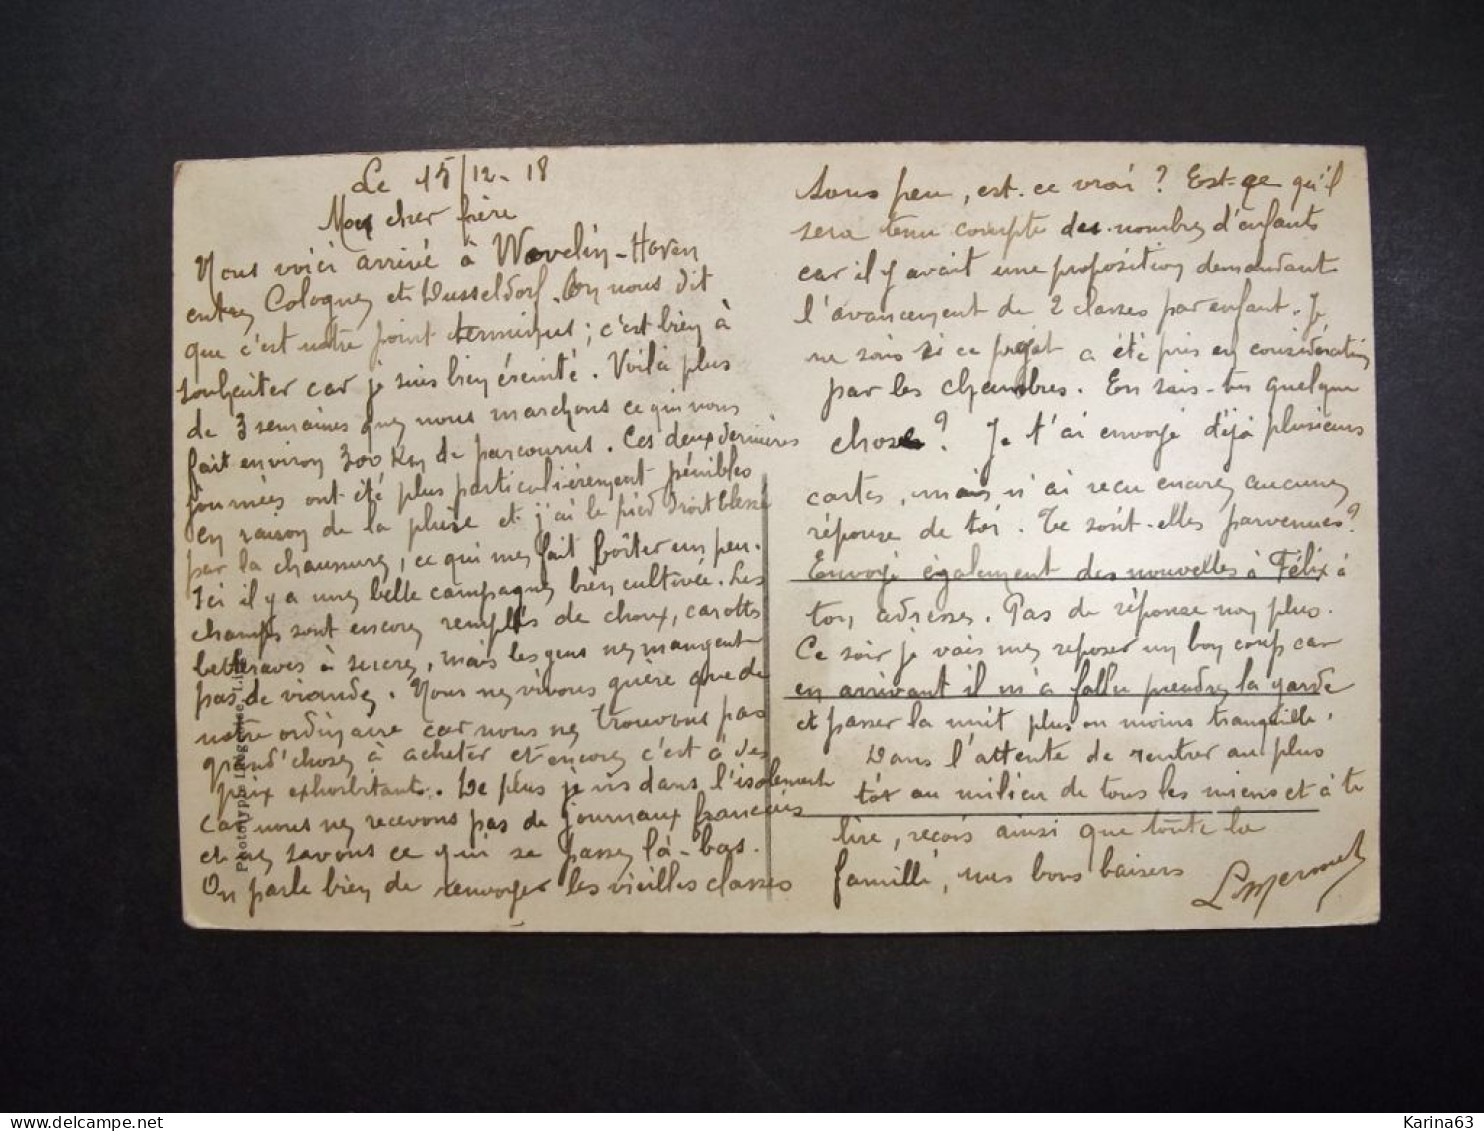 Le 15/12-18
Mon cher frère
Nous voici arrivé à Wevelin-Hoven
entre Cologne et Dusseldorf. On nous dit
que c'est notre point terminus ; c'est bien à
souhaiter car je suis bien éreinté. Voilà plus
de 3 semaines que nous marchons ce qui nous
fait environ 300 Km de parcourus. Ces deux dernières
journées ont été plus particulièrement pénibles
en raison de la pluie et j'ai le pied droit blessé
par la chaussure, ce qui me fait boîter un peu.
Ici il y a une belle campagne bien cultivée. Les
champs sont encore remplis de choux, carottes
betteraves à sucre, mais les gens ne mangent
pas de viande. Nous ne vivons guère que de
notre ordinaire car nous ne trouvons pas
grand'chose à acheter et encore c'est à des
prix exhorbitants. De plus je vis dans l'isolement
car nous ne recevons pas de journaux français
et ne savons ce qui se passe là-bas.
On parle bien de renvoyer les vieilles classes
sous peu, est-ce vrai ? Est-ce qu'il
sera tenu compte des nombres d'enfants
car il y avait une proposition demandant
l'avancement de 2 classes par enfant. Je
ne sais si ce projet a été pris en considération
par les chambres. En sais-tu quelque
chose ? Je t'ai envoyé déjà plusieurs
cartes, mais n'ai reçu encore aucune
réponse de toi. Te sont-elles parvenues ?
Envoyé également des nouvelles à Félix à
ton adresse. Pas de réponse non plus.
Ce soir je vais me reposer un bon coup car
en arrivant il m'a fallu prendre la garde
et passer la nuit plus ou moins tranquille.
Dans l'attente de rentrer au plus
tôt au milieu de tous les miens et à te
lire, reçois ainsi que toute la
famille, mes bons baisers
Phototypie
Karina63
delcampe.net